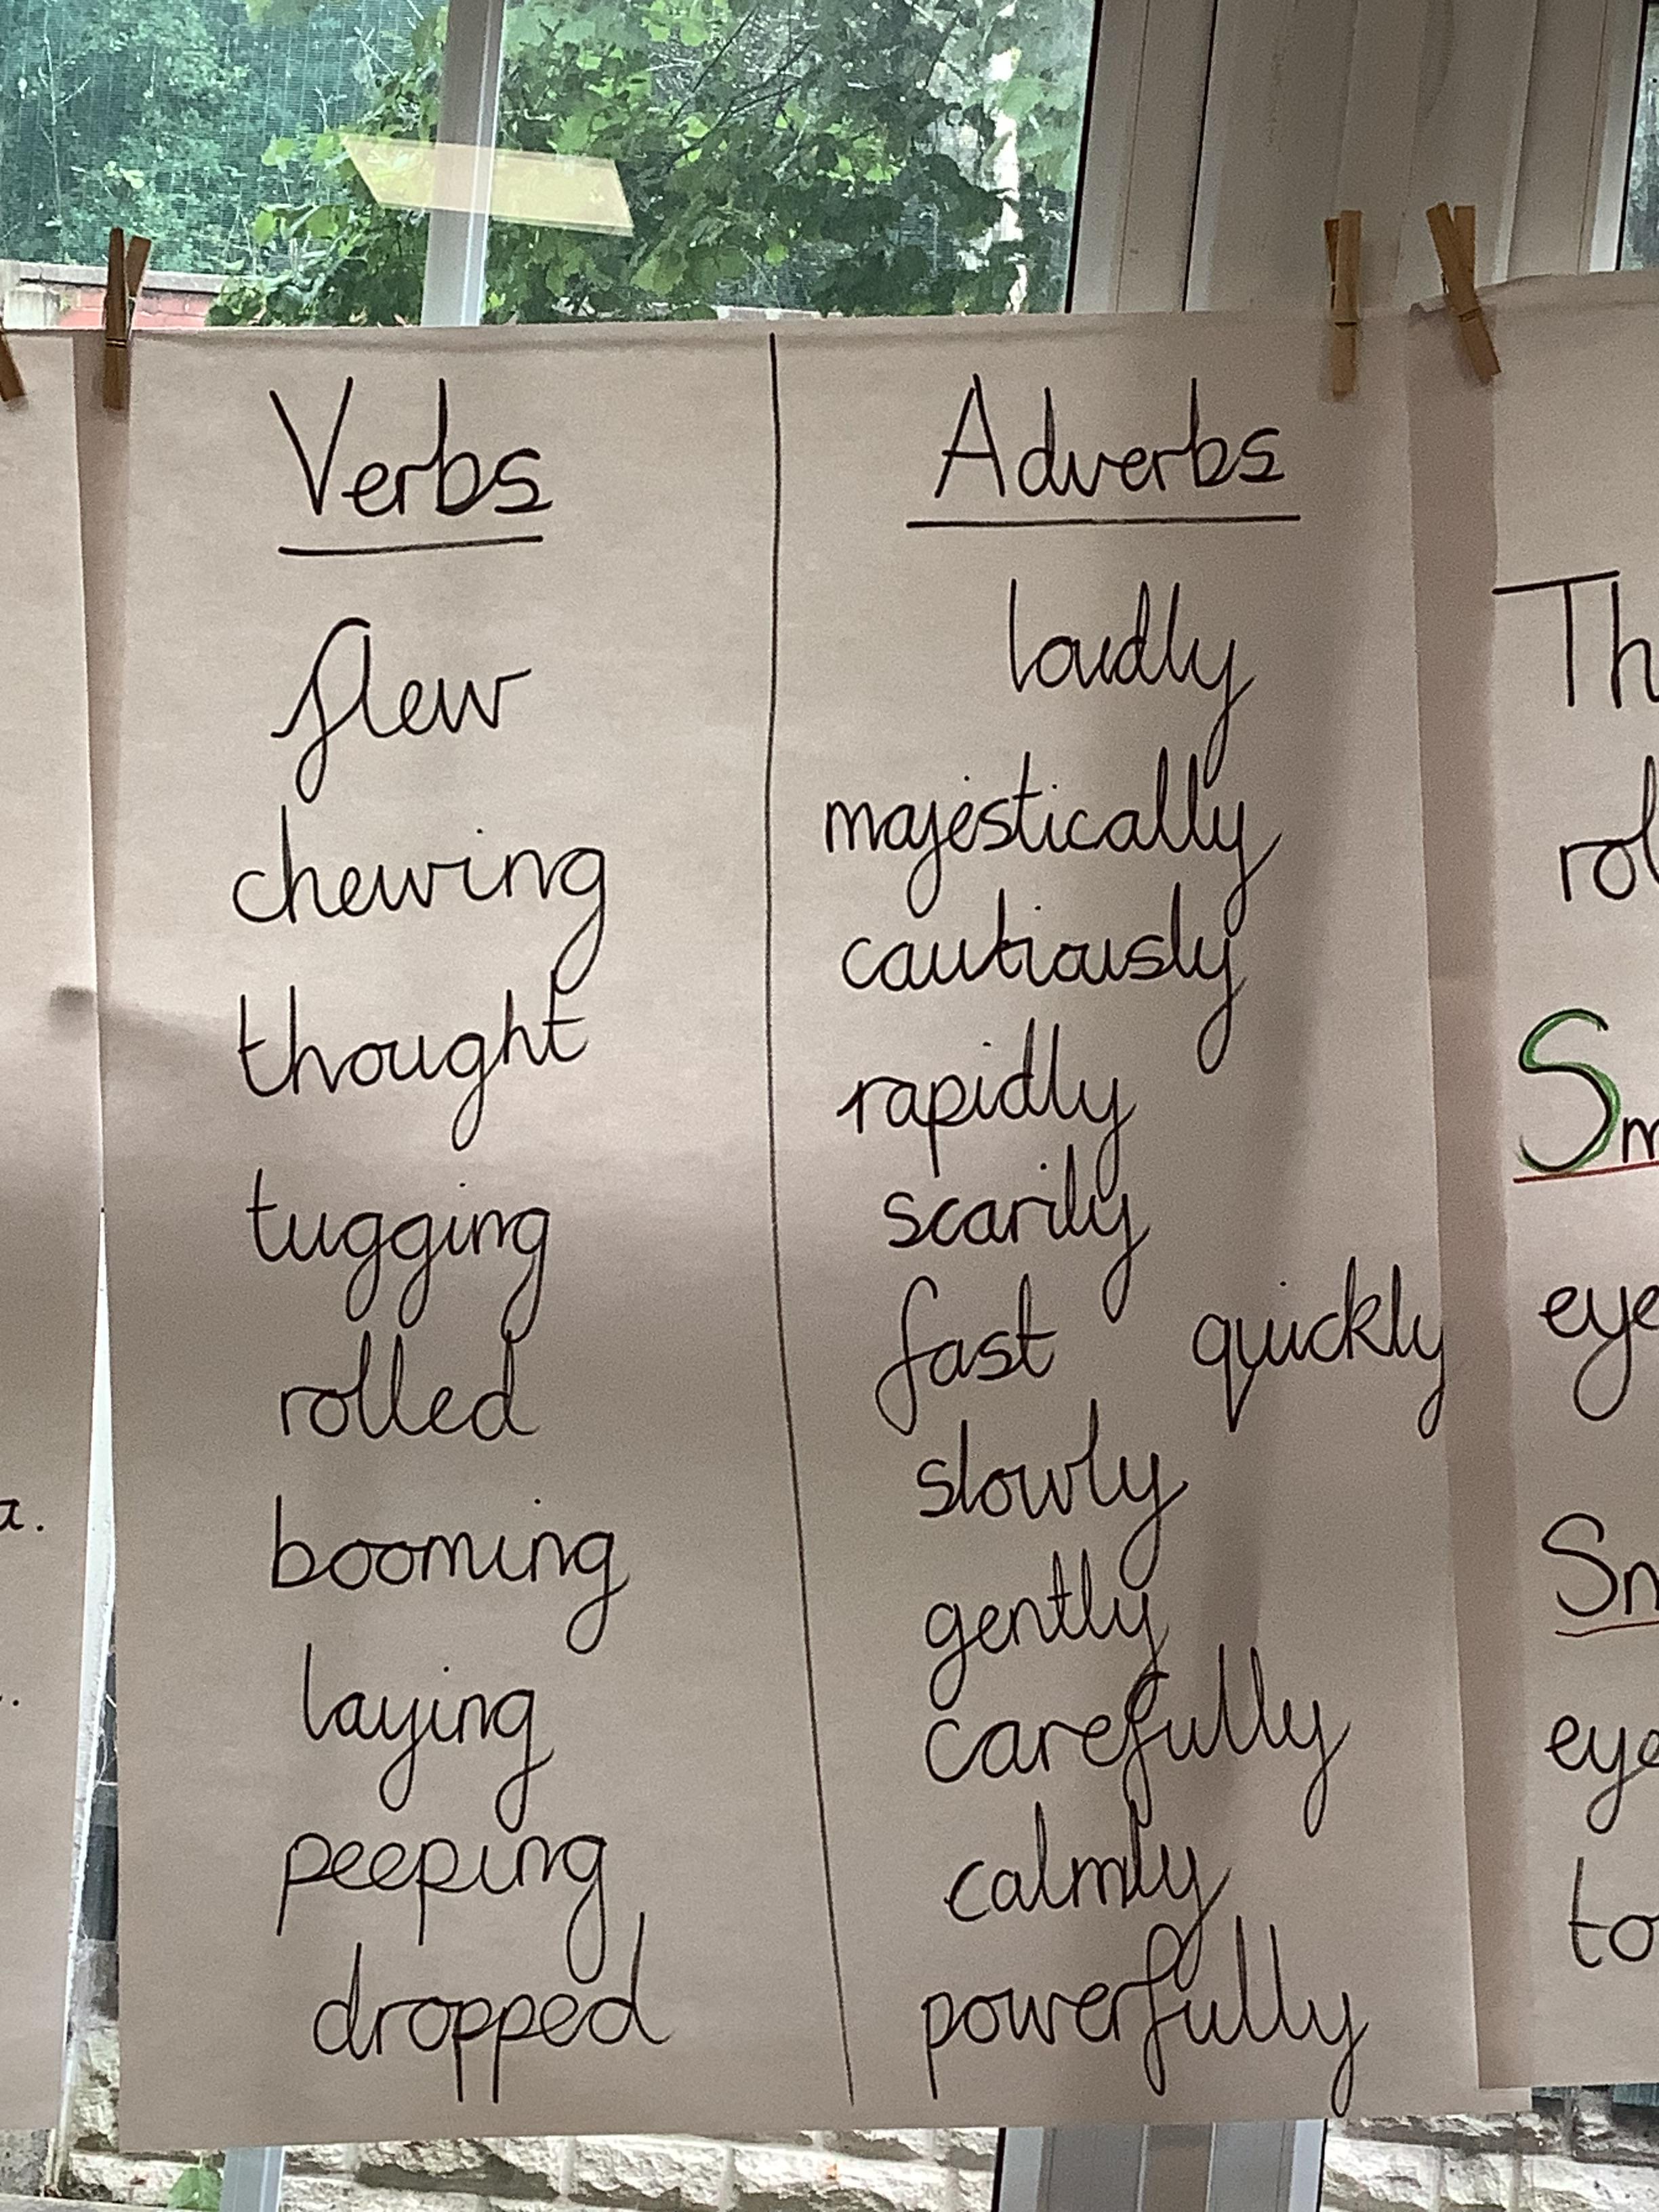 Verbs
flew
chewing
thought
tugging
rolled
booming
laying
peeping
dropped
Adverbs
loudly
majestically
cautiously
rapidly
scarily
fast quickly
slowly
gently
carefully
calmly
powerfully
Th
rol
Sm
eye
Sm
eye
to
a.